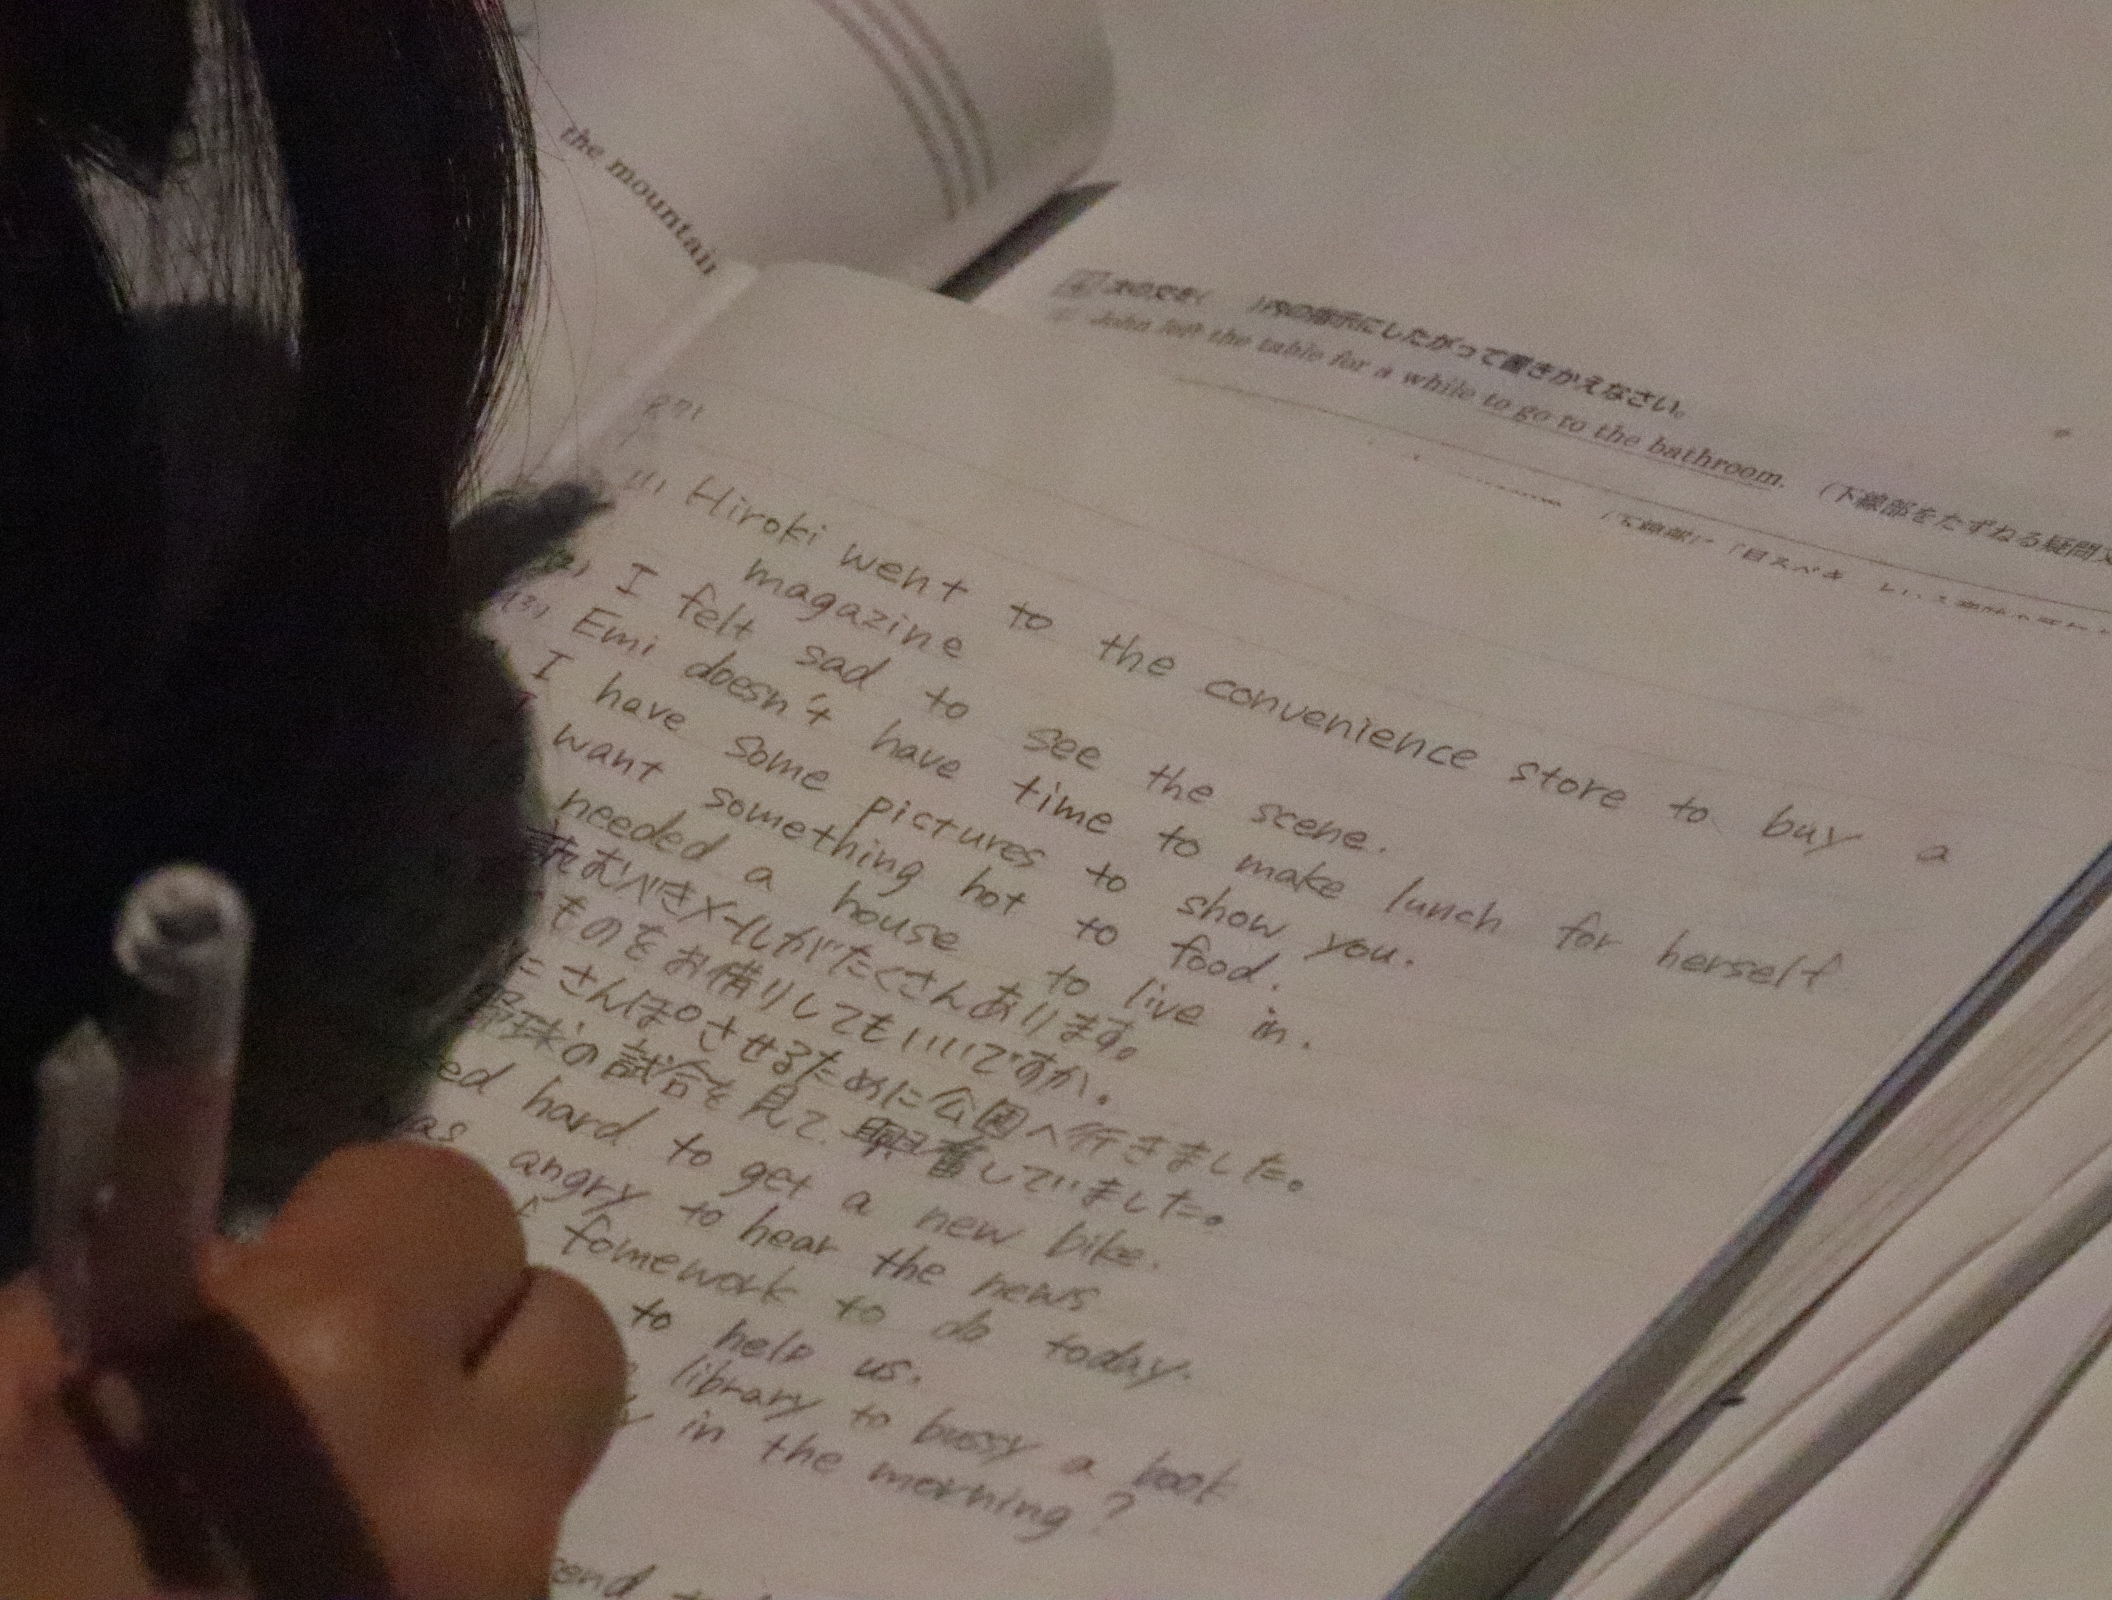 the mountain
)内の指示にしたがって書きかえなさい。
John left the table for a while to go to the bathroom. (下線部をたずねる疑問文
P.71
(1) Hiroki went to the convenience store to buy a
magazine
(2) I felt sad to see the scene.
(3) Emi doesn't have time to make lunch for herself
I have some pictures to show you.
I want something hot to food.
needed a house to live in.
読むべきメールがたくさんあります。
ものをお借りしてもいいですか。
さんぽさせるために公園へ行きました。
野球の試合を見て興奮していました。
ed hard to get a new bike.
as angry to hear the news
f fomework to do today.
to help us.
library to bussy a book
y in the morning?
end